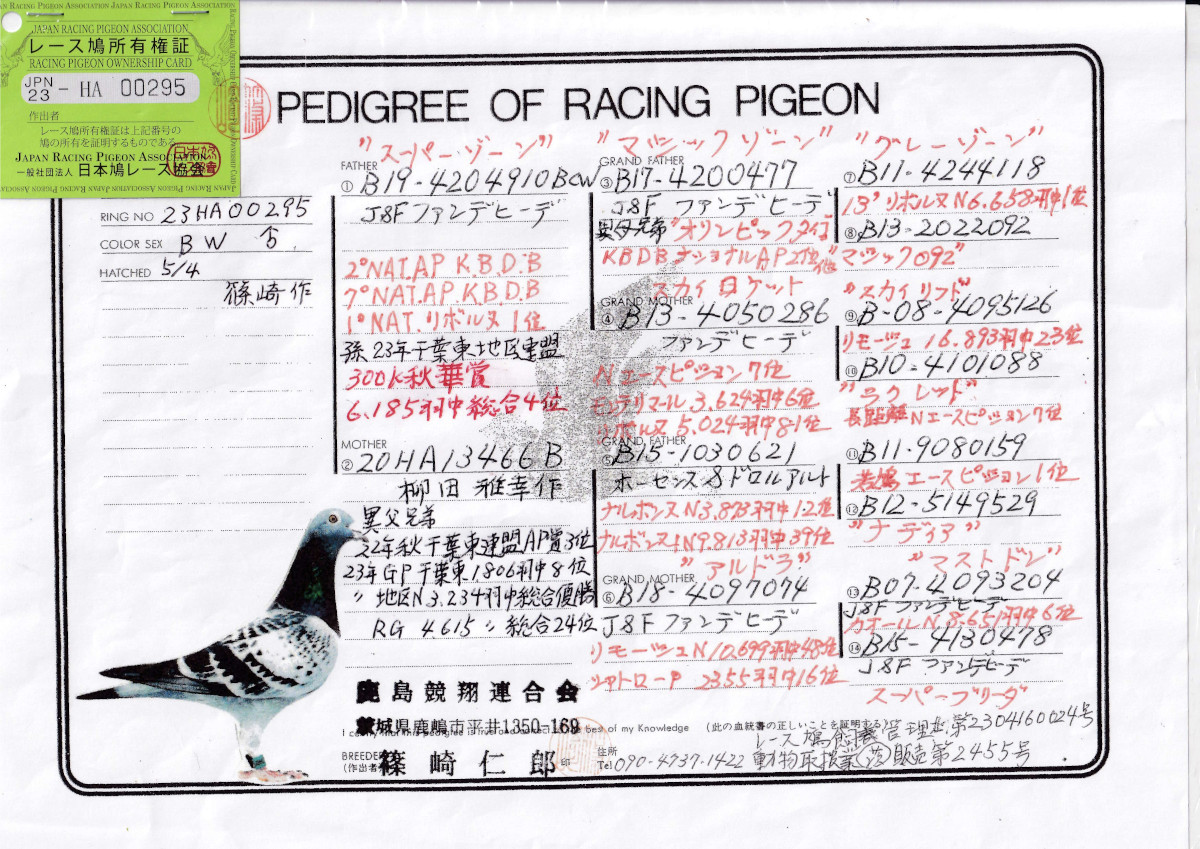 JAPAN RACING PIGEON ASSOCIATION
レース鳩所有権証
RACING PIGEON OWNERSHIP CARD
JPN 23 - HA 00295
作出者
レース鳩所有権証は上記番号の
鳩の所有を証明するものである
JAPAN RACING PIGEON ASSOCIATION
一般社団法人 日本鳩レース協会
PEDIGREE OF RACING PIGEON
RING NO 23HA00295
COLOR SEX BW ♂
HATCHED 5/4
篠崎作
"スーパーゾーン"
FATHER
① B19-4204910BCW
J&Fファンデヒーデ
2°NAT.AP K.B.D.B
7°NAT.AP.K.B.D.B
1°NAT.リボルヌ1位
孫23年千葉東地区連盟
300K秋華賞
6.185羽中総合4位
MOTHER
② 20HA13466B
柳田雅幸作
異父兄弟
22年秋千葉東連盟AP賞3位
23年GP千葉東1806羽中8位
〃地区N3.234羽中総合優勝
RG 4615〃総合24位
"マジックゾーン"
GRAND FATHER
③ B17-4200477
J&Fファンデヒーデ
異父兄弟"オリンピック
KBDBナショナルAP2位
スカイロケット
GRAND MOTHER
④ B13-4050286
ファンデヒーデ
Nエースピジョン7位
モンテリマール3.624羽中6位
リボルヌ5.024羽中81位
GRAND FATHER
⑤ B15-1030621
ホーセンス&ドロルアルト
ナルボンヌN3.893羽中12位
ナルボンヌIN9.813羽中39位
"アルドラ"
GRAND MOTHER
⑥ B18-4097074
J&Fファンデヒーデ
リモージュN10.699羽中48位
シャトロー 2355羽中16位
"グレーゾーン"
⑦ B11-4244118
13'リボルヌN6.658羽中1位
⑧ B13-2022092
"マジック092"
"スカイリフト"
⑨ B-08-4095126
リモージュ16.893羽中23位
⑩ B10-4101088
"ラクレッド"
長距離Nエースピジョン7位
⑪ B11-9080159
若鳩エースピジョン1位
⑫ B12-5149529
"ナディア"
"マストドン"
⑬ B07-4093204
J&Fファンデヒーデ
カオールN.8.651羽中6位
⑭ B15-4130478
J&Fファンデヒーデ
スーパーブリーダ
鹿島競翔連合会
茨城県鹿嶋市平井1350-169
best of my Knowledge (この血統書の正しいことを証明する)
BREEDER
(作出者) 篠崎仁郎 印
住所
Tel 090-4737-1422
レース鳩飼養管理士第2304160024号
動物取扱業 販売第2455号